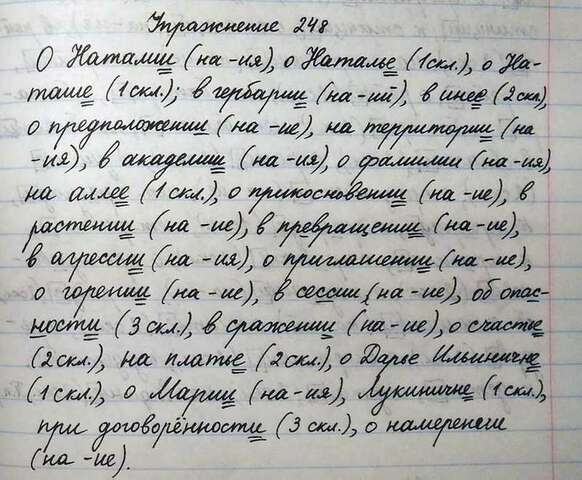 Упражнение 248
О Наталии (на -ия), о Наталье (1скл.), о На-
таше (1скл.); в гербарии (на -ий), в инее (2скл),
о предположении (на -ие), на территории (на
-ия), в академии (на -ия), о фамилии (на -ия),
на аллее (1 скл.), о прикосновении (на -ие), в
растении (на -ие), в превращении (на -ие),
в агрессии (на -ия), о приглашении (на -ие),
о горении (на -ие), в сессии (на -ие), об опас-
ности (3 скл.), в сражении (на -ие), о счастье
(2скл.), на платье (2 скл.), о Дарье Ильиничне
(1 скл.), о Марии (на -ия), Лукиничне (1 скл.),
при договорённости (3 скл.), о намерении
(на -ие).